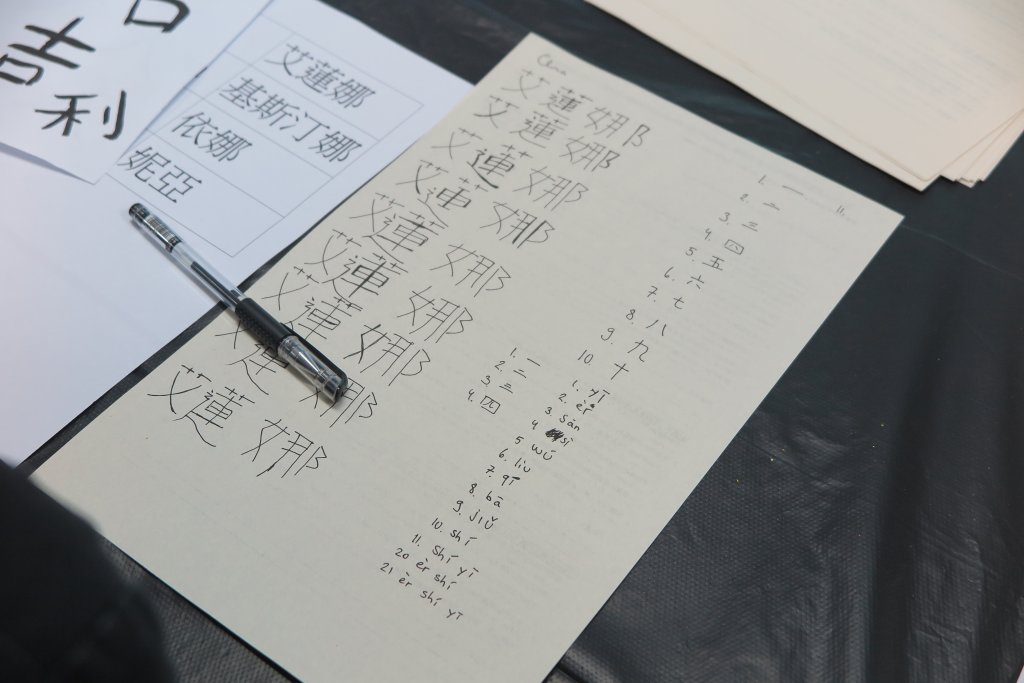 吉利
艾蓮娜
基斯汀娜
依娜
妮亞
艾蓮娜
艾蓮娜
艾蓮娜
艾蓮娜
艾蓮娜
艾蓮娜
艾蓮娜
艾蓮娜
艾蓮娜
1. 一
2. 二
3. 三
4. 四
1. 一
2. 二
3. 三
4. 四
5. 五
6. 六
7. 七
8. 八
9. 九
10. 十
1. yī
2. èr
3. sān
4 sì
5 wú
6. liù
7. qī
8. bā
9. jiǔ
10. shí
11. shí yī
20 èr shí
21 èr shí yī
11.